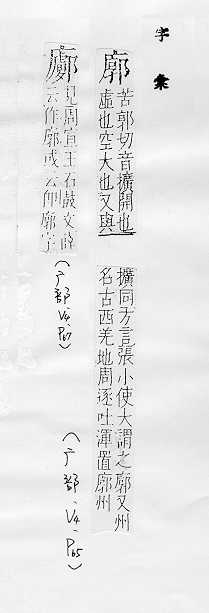 字彙
廓 苦郭切音擴開也
虛也空大也又與
擴同方言張小使大謂之廓又州
名古西羌地周逐吐渾置廓州
(广部、V4、P65)
見周宣王石鼓文薛
云作廓或云卽廓字
(广部 V4 P67)